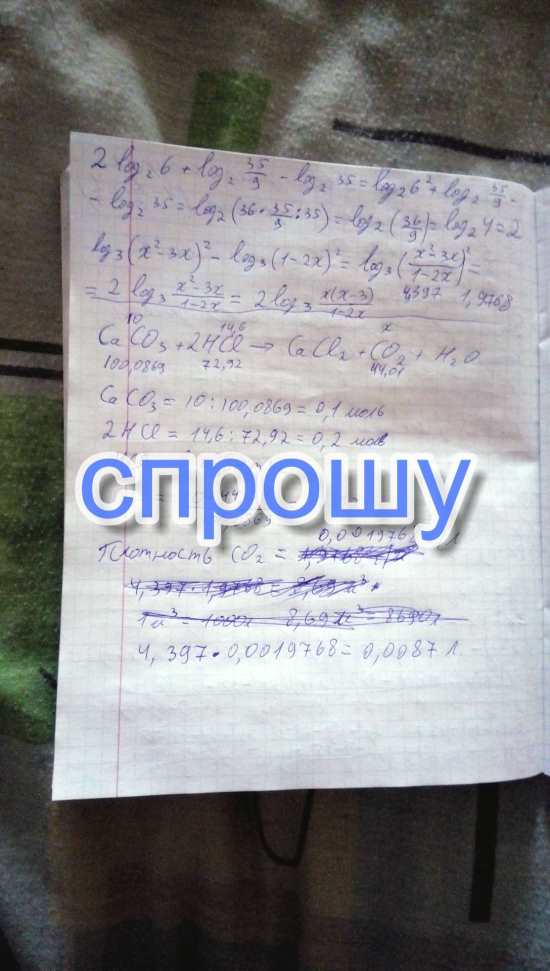 2 log₂ 6 + log₂ 35/9 - log₂ 35 = log₂ 6² + log₂ 35/9 -
- log₂ 35 = log₂ (36 · 35/9 : 35) = log₂ (36/9) = log₂ 4 = 2
log₃ (x²-3x)² - log₃ (1-2x)² = log₃ (x²-3x/1-2x)² =
= 2 log₃ x²-3x/1-2x = 2 log₃ x(x-3)/1-2x 4,397 1,9768
10 14,6 x
CaCO₃ + 2HCl → CaCl₂ + CO₂ + H₂O
100,0869 72,92 44,01
CaCO₃ = 10 : 100,0869 = 0,1 моль
2HCl = 14,6 : 72,92 = 0,2 моль
спрошу
0,0019768 л
Плотность CO₂ =
4,397 · 1,9768 = 8,69 м³
1 м³ = 1000л 8,69 м³ = 8690л
4,397 · 0,0019768 = 0,0087 л